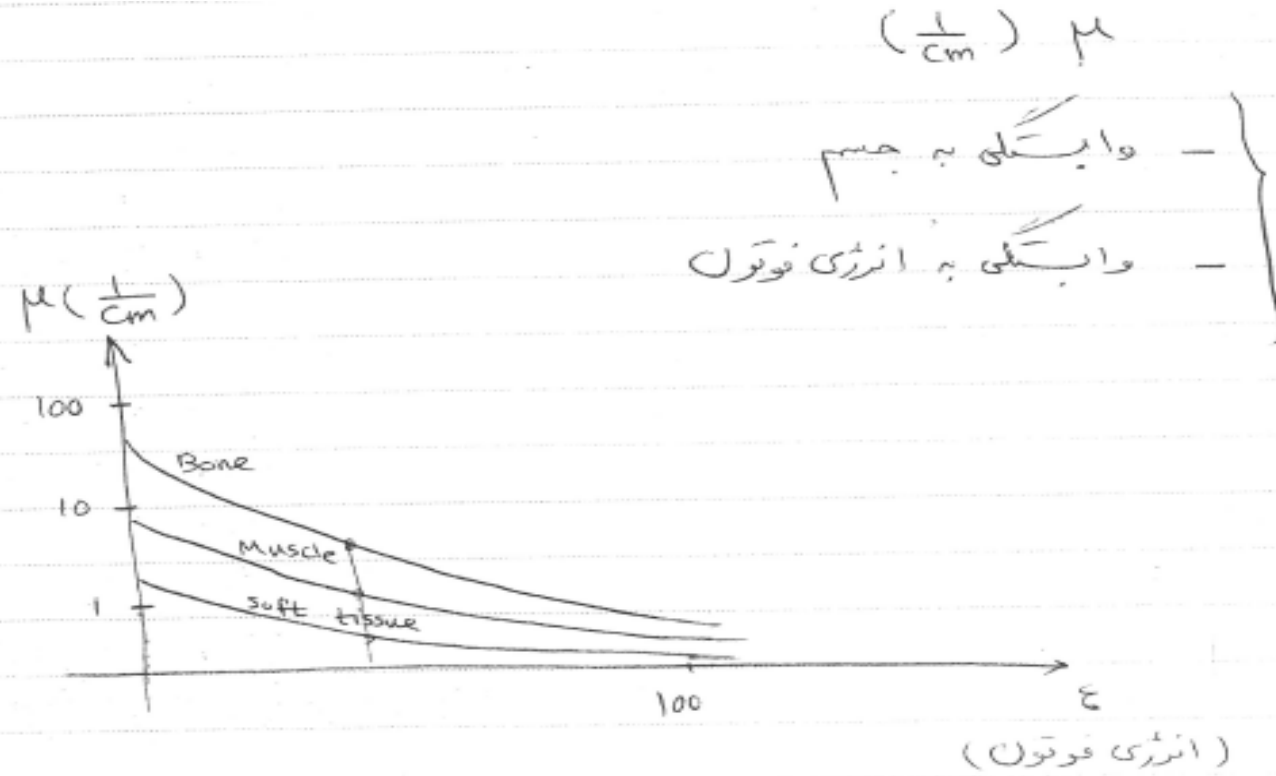 μ (1/cm)
- وابستگی به جسم
- وابستگی به انرژی فوتون
μ(1/cm)
100
Bone
10
Muscle
1
soft tissue
100
ε
(انرژی فوتون)